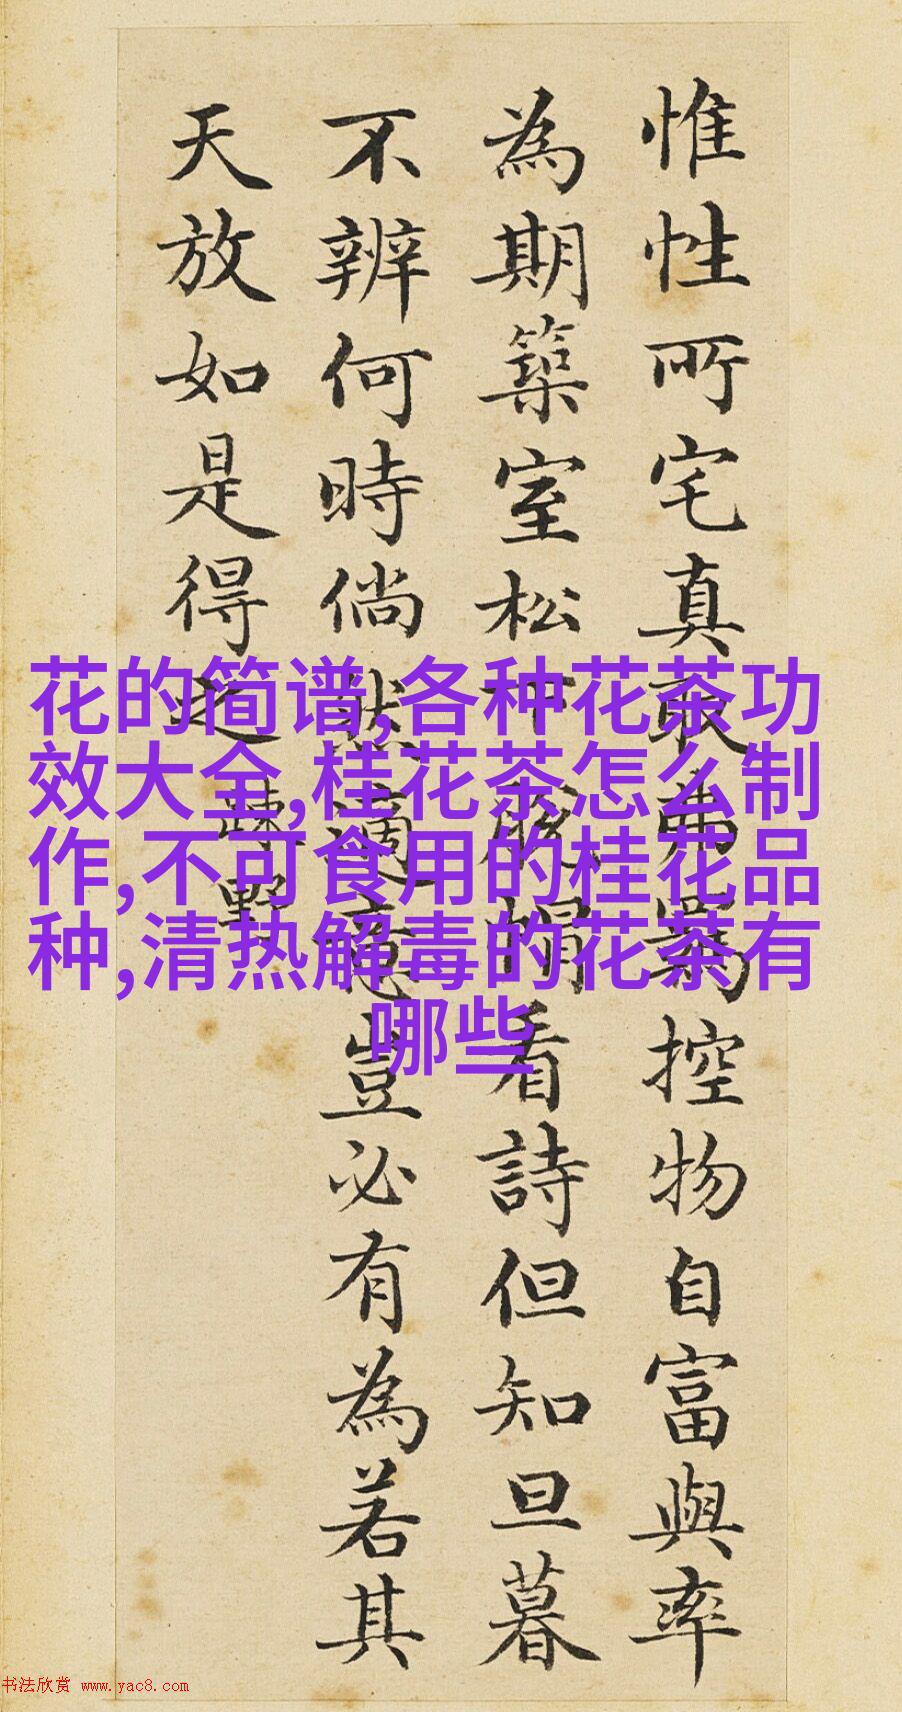 惟性所宅真取弗羈控物自富與率
為期築室松下脫帽看詩但知旦暮
不辨何時倘然適意豈必有為若其
天放如是得之疎野
花的简谱,各种花茶功
效大全,桂花茶怎么制
作,不可食用的桂花品
种,清热解毒的花茶有
哪些
书法欣赏 www.yac8.com